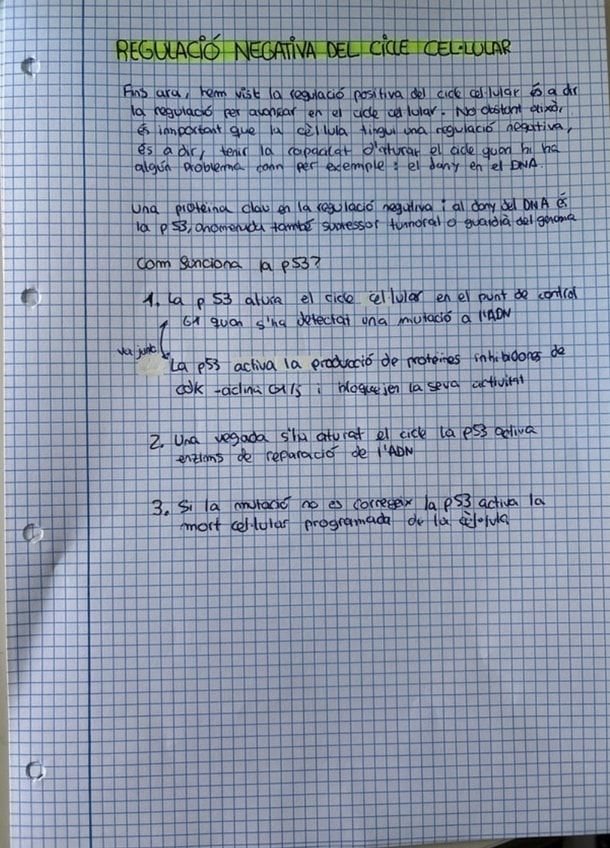 REGULACIÓ NEGATIVA DEL CICLE CEL·LULAR
Fins ara, hem vist la regulació positiva del cicle cel·lular és a dir
la regulació per avançar en el cicle cel·lular. No obstant això,
és important que la cèl·lula tingui una regulació negativa,
és a dir, tenir la capacitat d'aturar el cicle quan hi ha
algún problema com per exemple: el dany en el DNA.
Una proteïna clau en la regulació negativa i al dany del DNA és
la p53, anomenada també supressor tumoral o guardià del genoma
Com funciona la p53?
1. La p53 atura el cicle cel·lular en el punt de control
G1 quan s'ha detectat una mutació a l'ADN
va junt
La p53 activa la producció de proteïnes inhibidores de
cdk - ciclina G1/S i bloquejen la seva activitat
2. Una vegada s'ha aturat el cicle la p53 activa
enzims de reparació de l'ADN
3. Si la mutació no es corregeix la p53 activa la
mort cel·lular programada de la cèl·lula